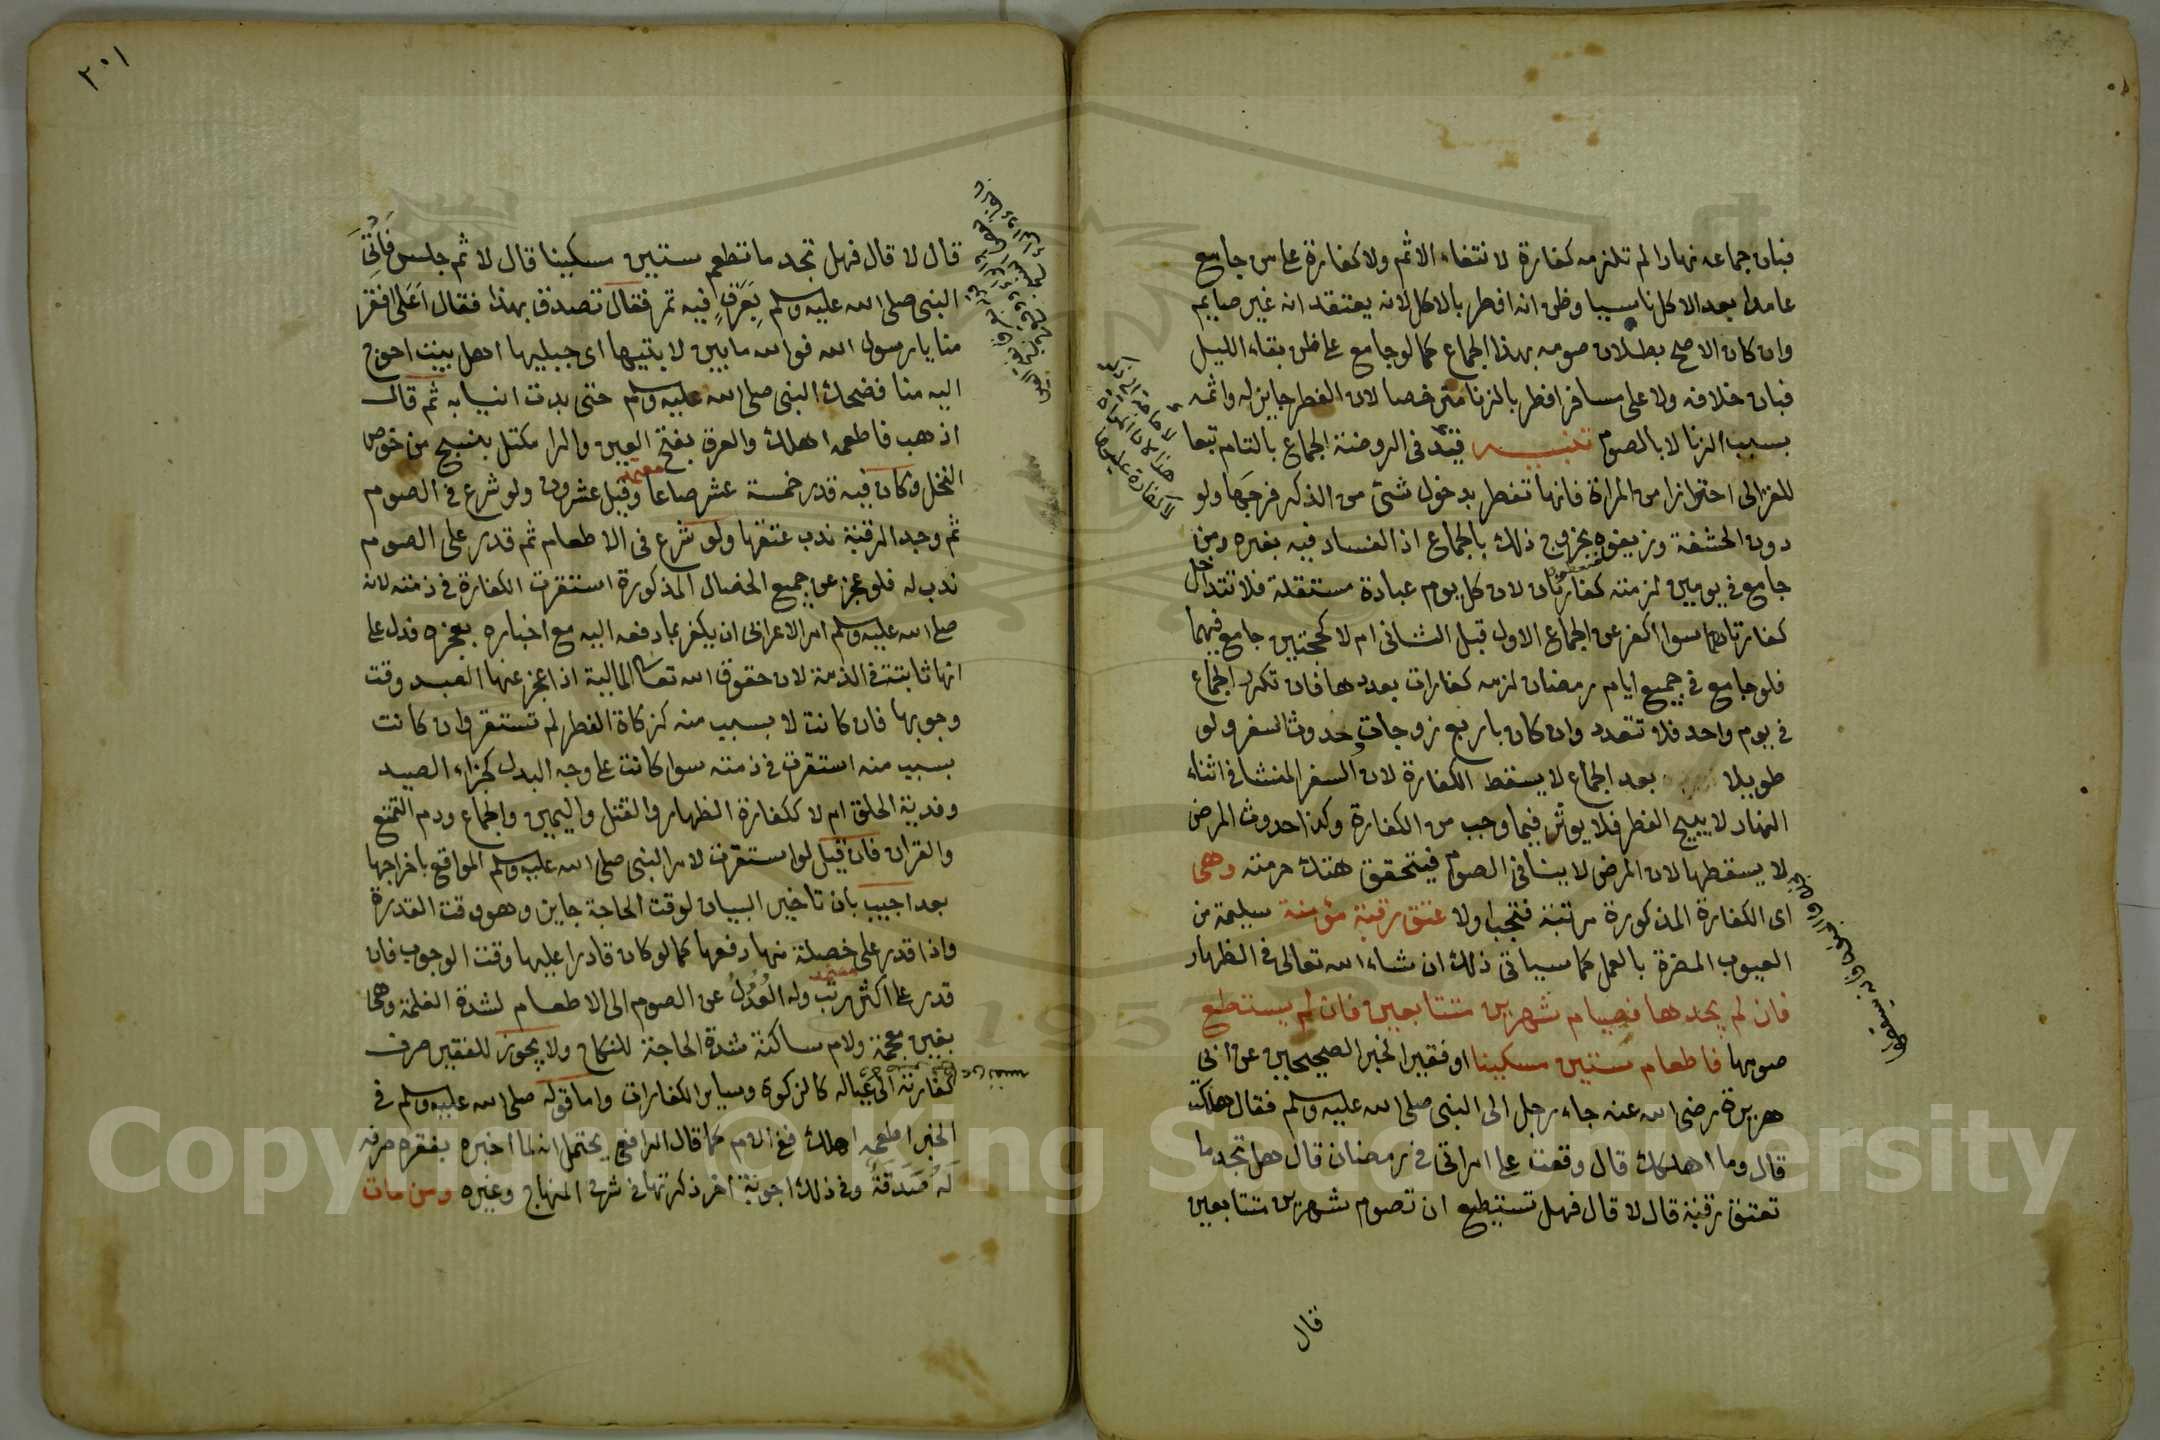 فبان جماعه نهارا لم تلزمه كفارة لانتفاء الاثم ولا كفارة على من جامع
عامدا بعد الاكل ناسيا وظن انه افطر بالاكل لانه يعتقد انه غير صايم
وان كان الاصح بطلان صومه بهذا الجماع كما لو جامع على ظن بقاء الليل
فبان خلافه ولا على مسافر افطر بالزنا مترخصا لان الفطر جايز له واثمه
بسبب الزنا لا بالصوم تنبيه قيد فى الروضة الجماع بالتام تبعا
للغزالى احترازا من المراة فانها تفطر بدخول شئ من الذكر فرجها ولو
دون الحشفة وزيفوه بخروج ذلك بالجماع اذ الفساد فيه بغيره ومن
جامع فى يومين لزمته كفارتان لان كل يوم عبادة مستقلة فلا تتداخل
كفارتاهما سوا اكفر عن الجماع الاول قبل الثانى ام لا كحجتين جامع فيهما
فلو جامع فى جميع ايام رمضان لزمه كفارات بعددها فان تكرر الجماع
فى يوم واحد فلا تتعدد وان كان باربع زوجات وحدوث السفر ولو
طويلا بعد الجماع لا يسقط الكفارة لان السفر المنشا فى اثناء
النهار لا يبيح الفطر فلا يوثر فيما وجب من الكفارة وكذا حدوث المرض
لا يسقطها لان المرض لا ينافى الصوم فيتحقق هتك حرمته وهى
اى الكفارة المذكورة مرتبة فتجب اولا عتق رقبة مؤمنة سليمة من
العيوب المضرة بالعمل كما سياتى ذلك ان شاء الله تعالى فى الظهار
فان لم يجدها فصيام شهرين متتابعين فان لم يستطع
صومها فاطعام ستين مسكينا او فقيرا لخبر الصحيحين عن ابى
هريرة رضى الله عنه جاء رجل الى النبى صلى الله عليه وسلم فقال هلكت
قال وما اهلكك قال وقعت على امراتى فى رمضان قال هل تجد ما
تعتق رقبة قال لا قال فهل تستطيع ان تصوم شهرين متتابعين
قال
٢٠١
قال لا قال فهل تجد ما تطعم ستين مسكينا قال لا ثم جلس فَاُتِىَ
النبى صلى الله عليه وسلم بِعَرَقٍ فيه تمر فقال تصدق بهذا فقال اَعَلى افقر
منا يا رسول الله فوالله ما بين لابتيها اى جبليها اهل بيت احوج
اليه منا فضحك النبى صلى الله عليه وسلم حتى بدت انيابه ثم قال
اذهب فاطعمه اهلك والعرق بفتح العين والرا مكتل ينسج من خوص
النخل وكان فيه قدر خمسة عشر صاعا وقيل عشرون ولو شرع فى الصوم
ثم وجد الرقبة ندب عتقها ولو شرع فى الاطعام ثم قدر على الصوم
ندب له فلو عجز عن جميع الخصال المذكورة استقرت الكفارة فى ذمته لانه
صلى الله عليه وسلم امر الاعرابى ان يكفر بما دفعه اليه مع اخباره بعجزه فدل على
انها ثابتة فى الذمة لان حقوق الله تعالى المالية اذا عجز عنها العبد وقت
وجوبها فان كانت لا بسبب منه كزكاة الفطر لم تستقر وان كانت
بسبب منه استقرت فى ذمته سوا كانت على وجه البدل كجزاء الصيد
وفدية الحلق ام لا ككفارة الظهار والقتل واليمين والجماع ودم التمتع
والقران فان قيل لو استقرت لامر النبى صلى الله عليه وسلم المواقع باخراجها
بعد اجيب بان تاخير البيان لوقت الحاجة جايز وهو وقت القدرة
واذا قدر على خصلة منها دفعها كما لو كان قادرا عليها وقت الوجوب فان
قدر على اكثر رتب وله العُدُولُ عن الصوم الى الاطعام لشدة الغلمة وهى
بغين معجمة ولام ساكنة شدة الحاجة للنكاح ولا يجوز للفقير صرف
كفارته الى عياله كالزكوة وساير الكفارات واما قوله صلى الله عليه وسلم فى
الخبر اطعمه اهلك ففى الام كما قال الرافعى يحتمل انه لما اخبره بفقره صرفه
لَهُ صَدَقَةً وفى ذلك اجوبة اخر ذكرتها فى شرح المنهاج وغيره ومن مات
Copyright © King Saud University
1957